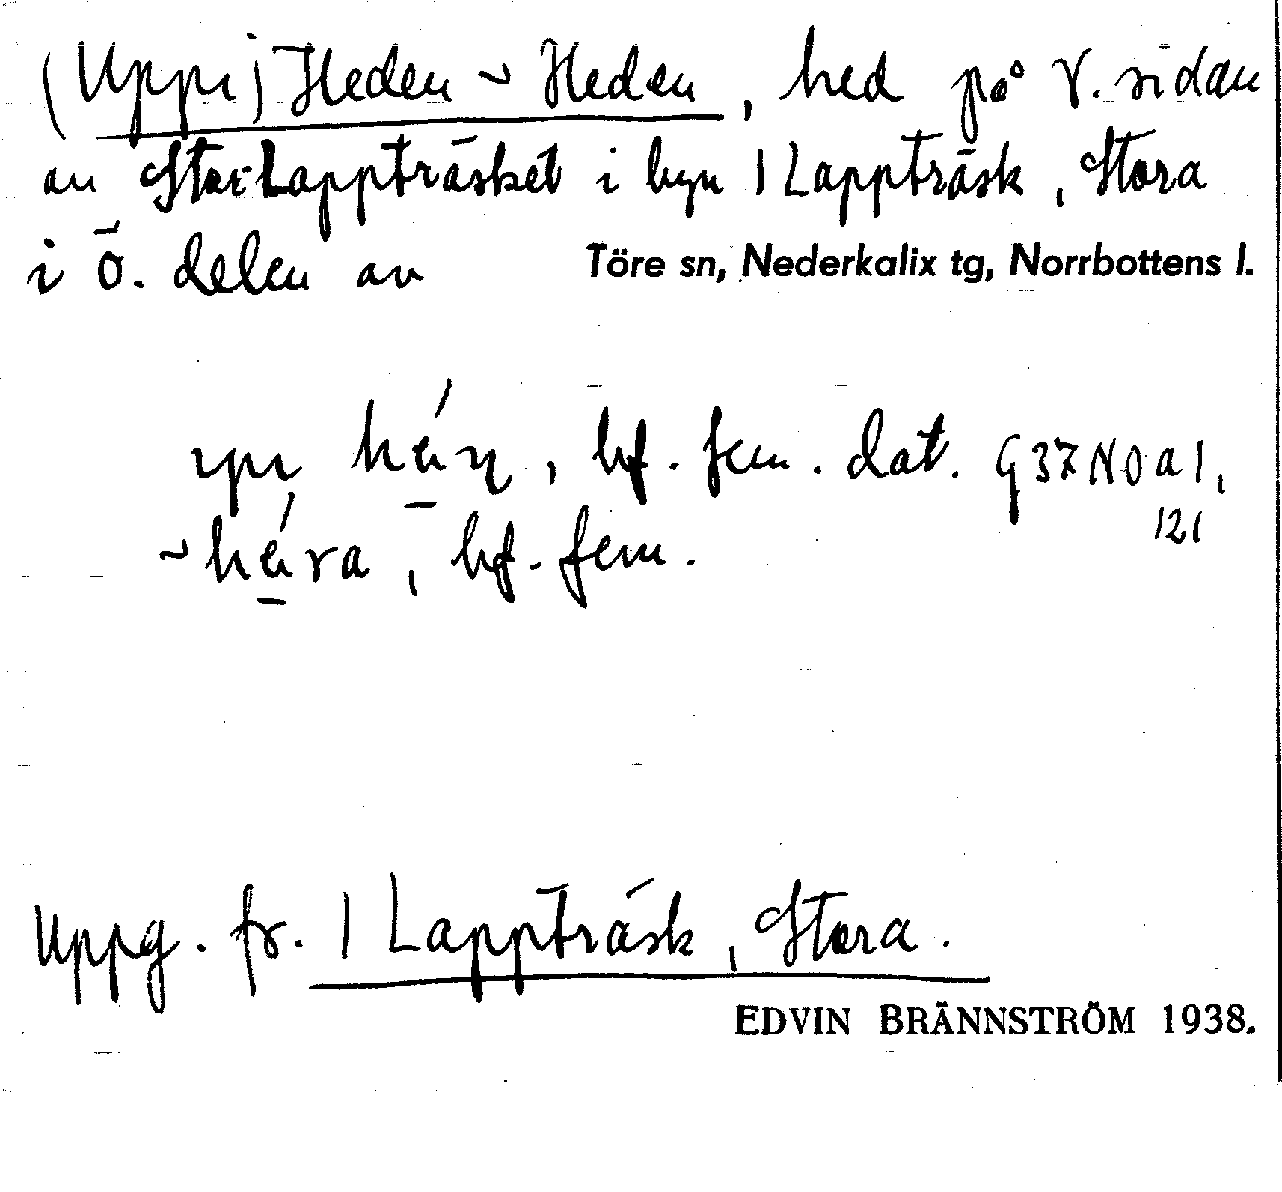 (Uppi) Heden ~ Heden, hed på V. sidan
av Stor-Lappträsket i byn 1 Lappträsk, Stora
i Ö. delen av Töre sn, Nederkalix tg, Norrbottens l.
bf. fem. dat. G37N0a1,
121
~ bf. fem.
Uppg. fr. 1 Lappträsk, Stora.
EDVIN BRÄNNSTRÖM 1938.